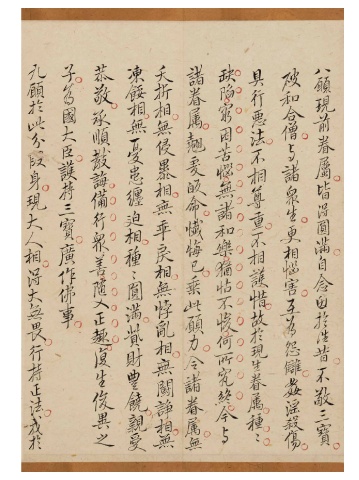 八願現前眷屬皆得圓滿自念曲於往昔不敬三寶
破和合僧与諸衆生更相惱害互為怨讎姦淫殺傷
具行惡法不相尊重不相護惜故於現生眷屬種〻
缺陷窮困苦惱無諸和樂猶怙不悛何所究終今与
諸眷屬翹爱皈命懺悔已乘此願力令諸眷屬無
夭折相無侵暴相無乖戾相無悖亂相無鬪諍相無
凍餒相無憂患纏迫相種〻圓滿貲財豊饒親愛
恭敬承順教誨備行衆善隨入正趣復生俊異之
子為國大臣護持三寶廣作佛事
九願於此分段身現大人相得大無畏行持正法或於